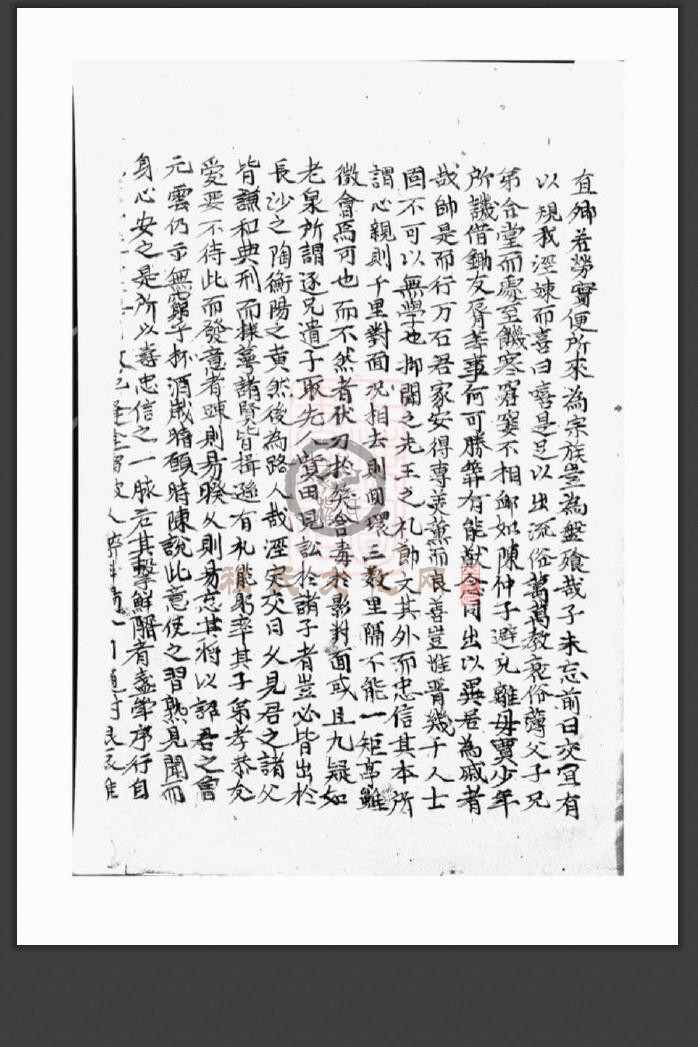 直鄉若勞實便所來為宗族豈為盤飧哉子未忘前日交宜有
以規我溼竦而喜曰嘻是足以出流俗萬萬教衰俗薄父子兄
弟合堂而處至饑寒窘窶不相卹如陳仲子避兄離母賈少年
所譏借鋤友唇等事何可勝筭有能猷合同出以異居為戚者
哉帥是而行万石君家安得專美薰而良善豈惟晋幾千人士
固不可以無學也抑聞之先王之礼飾文其外而忠信其本所
謂心親則千里對面况相去則回環三数里隔不能一矩亭雖
徵會焉可也而不然者秋刀於 含毒於影對面或且九疑如
老泉所謂逐兄遺子取先人貲田見訟於諸子者豈必皆出於
長沙之陶衡陽之黄然後為路人哉溼定交日乆見君之諸父
皆謙和典刑而 諸賢皆揖遜有礼能躬率其子弟孝恭友
愛要不待此而發意者踈則易睽乆則易忘其将以諮君之會
元雲仍示無窮乎杯酒歲時頋時陳說此意使之習熟見聞而
身心安之是所以壽忠信之一脉若其擊鮮醑者盞筭序行自